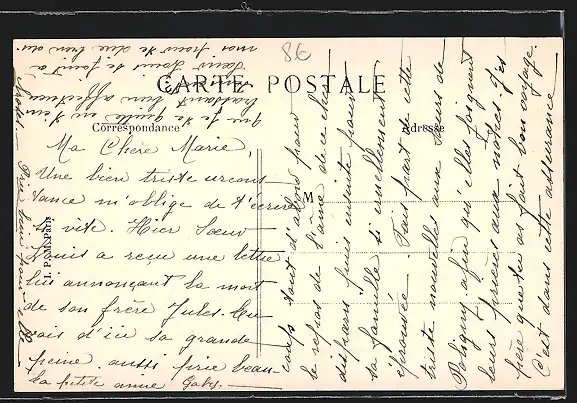 86
CARTE POSTALE
Correspondance
Adresse
I. P. M. Paris
Ma Chère Marie,
Une bien triste circons
tance m'oblige de t'écrire
si vite. Hier Sœur
Louis a reçu une lettre
lui annonçant la mort
de son frère Jules. Tu
vois d'ici sa grande
peine. aussi prie beau-
coup tout d'abord pour
le repos de l'âme de ce cher
disparu puis ensuite pour
sa famille si cruellement
éprouvée. Fais part de cette
triste nouvelles aux Sœurs de
Poligny afin qu'elles joignent
leurs prières aux nôtres. J'es
père que tu as fait bon voyage.
C'est dans cette assurance
que je te quitte en t'em
brassant bien affectueu
sement
Ta petite amie Gaby.